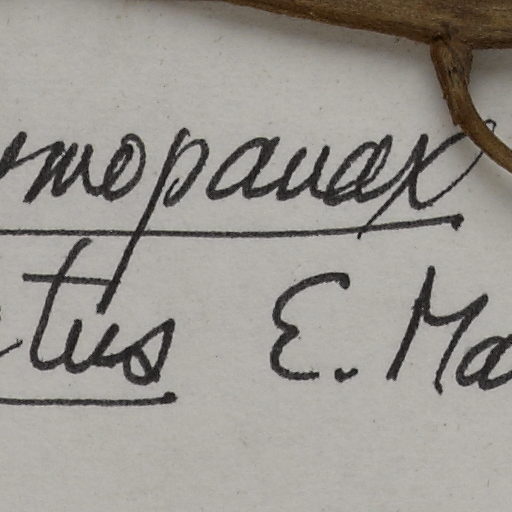 mopanax
tus E. Ma